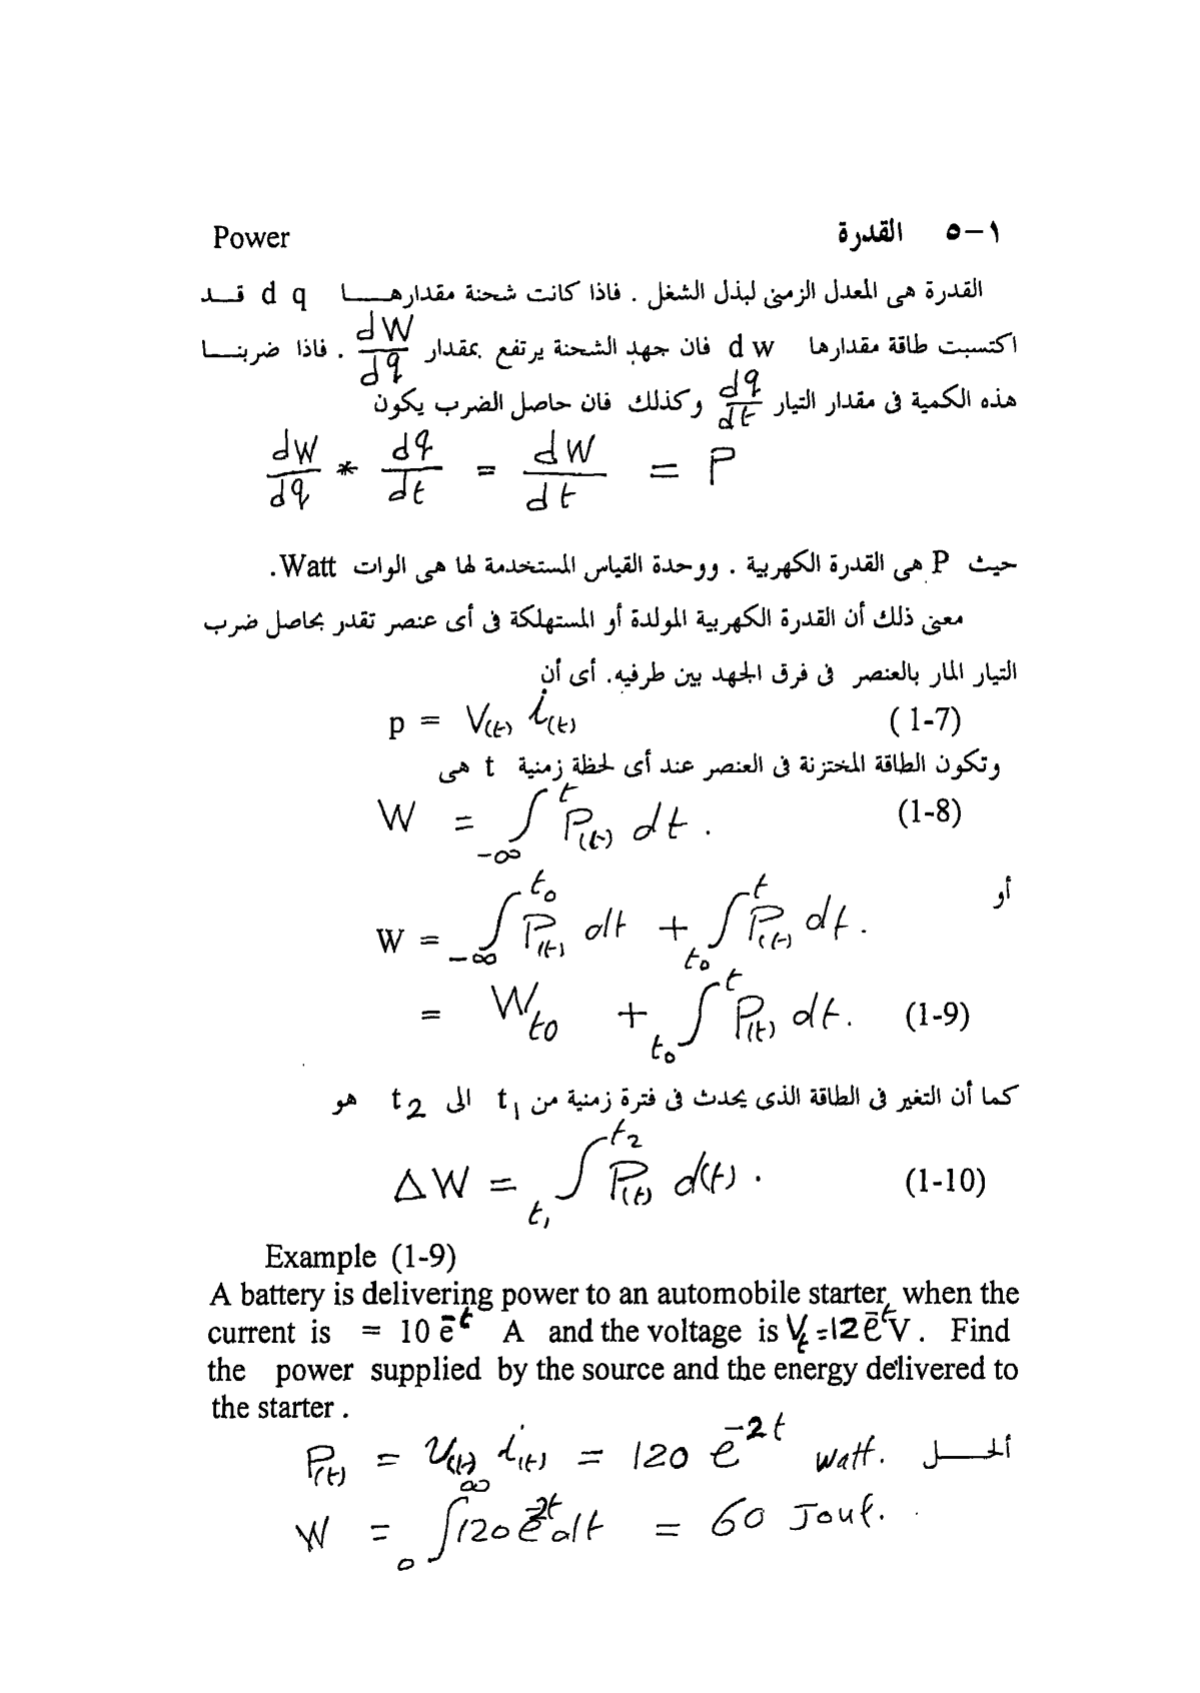 ١-٥ القدرة Power
القدرة هى المعدل الزمنى لبذل الشغل . فاذا كانت شحنة مقدارهـــا d q قــد
اكتسبت طاقة مقدارها d w فان جهد الشحنة يرتفع بمقدار dW/dq . فاذا ضربنــا
هذه الكمية فى مقدار التيار dq/dt وكذلك فان حاصل الضرب يكون
dW/dq * dq/dt = dW/dt = P
حيث P هى القدرة الكهربية . ووحدة القياس المستخدمة لها هى الوات Watt.
معنى ذلك أن القدرة الكهربية المولدة أو المستهلكة فى أى عنصر تقدر بحاصل ضرب
التيار المار بالعنصر فى فرق الجهد بين طرفيه. أى أن
p = V(t) i(t) ( 1-7)
وتكون الطاقة المختزنة فى العنصر عند أى لحظة زمنية t هى
W = ∫_{-∞}^{t} P(t) dt . (1-8)
أو
W = ∫_{-∞}^{t₀} P(t) dt + ∫_{t₀}^{t} P(t) dt.
= W_{t0} + ∫_{t₀}^{t} P(t) dt. (1-9)
كما أن التغير فى الطاقة الذى يحدث فى فترة زمنية من t₁ الى t₂ هو
ΔW = ∫_{t₁}^{t₂} P(t) d(t) . (1-10)
Example (1-9)
A battery is delivering power to an automobile starter, when the
current is = 10 e^{-t} A and the voltage is V_t =12 e^{-t} V . Find
the power supplied by the source and the energy delivered to
the starter .
الحـــل P(t) = v(t) i(t) = 120 e^{-2t} watt.
W = ∫_{0}^{∞} 120 e^{-2t} dt = 60 Joul.